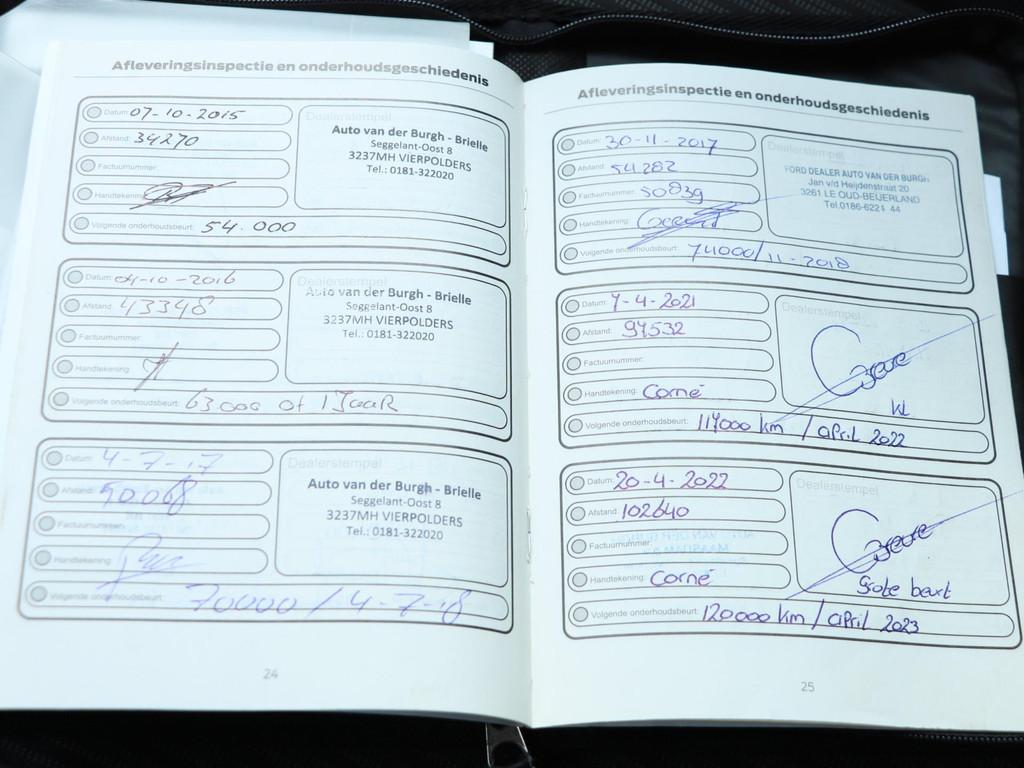 Afleveringsinspectie en onderhoudsgeschiedenis
Datum: 07-10-2015
Afstand: 34270
Factuurnummer:
Handtekening:
Volgende onderhoudsbeurt: 54.000
Dealerstempel
Auto van der Burgh - Brielle
Seggelant-Oost 8
3237MH VIERPOLDERS
Tel.: 0181-322020
Datum: 04-10-2016
Afstand: 43348
Factuurnummer:
Handtekening:
Volgende onderhoudsbeurt: 63000 of 1 JaaR
Dealerstempel
Auto van der Burgh - Brielle
Seggelant-Oost 8
3237MH VIERPOLDERS
Tel.: 0181-322020
Datum: 4-7-17
Afstand: 50068
Factuurnummer:
Handtekening:
Volgende onderhoudsbeurt: 70000 / 4-7-18
Dealerstempel
Auto van der Burgh - Brielle
Seggelant-Oost 8
3237MH VIERPOLDERS
Tel.: 0181-322020
24
Afleveringsinspectie en onderhoudsgeschiedenis
Datum: 30-11-2017
Afstand: 54.282
Factuurnummer: 50839
Handtekening:
Volgende onderhoudsbeurt: 74000/11-2018
Dealerstempel
FORD DEALER AUTO VAN DER BURGH
Jan v/d Heijdenstraat 20
3261 LE OUD-BEIJERLAND
Tel.0186-6221 44
Datum: 7-4-2021
Afstand: 97532
Factuurnummer:
Handtekening: Corné
Volgende onderhoudsbeurt: 117000 km / april 2022
Dealerstempel
KL
Datum: 20-4-2022
Afstand: 102640
Factuurnummer:
Handtekening: Corné
Volgende onderhoudsbeurt: 120000 km / april 2023
Dealerstempel
Grote beurt
25